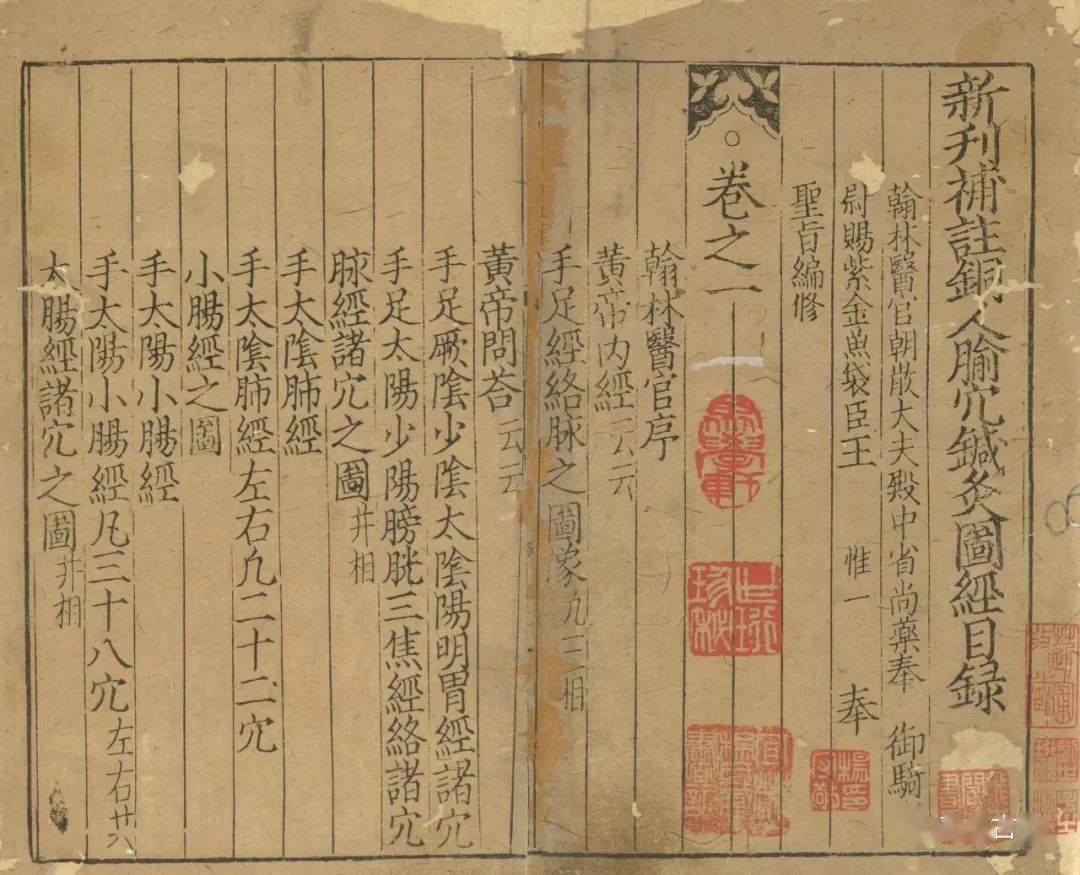 新刋補註銅人腧穴鍼灸圖經目録
翰林醫官朝散大夫殿中省尚藥奉 御騎
尉賜紫金魚袋臣王 惟一 奉
聖旨編修
卷之一
翰林醫官序
黃帝内經云云
手足經絡脉之圖像凡三相
黃帝問荅云云
手足厥陰少陰太陰陽明胃經諸穴
手足太陽少陽膀胱三焦經絡諸穴
脉經諸穴之圖并相
手太陰肺經
手太陰肺經左右凡二十二穴
小腸經之圖
手太陽小腸經
手太陽小腸經凡三十八穴 左右廿六
太腸經諸穴之圖并相